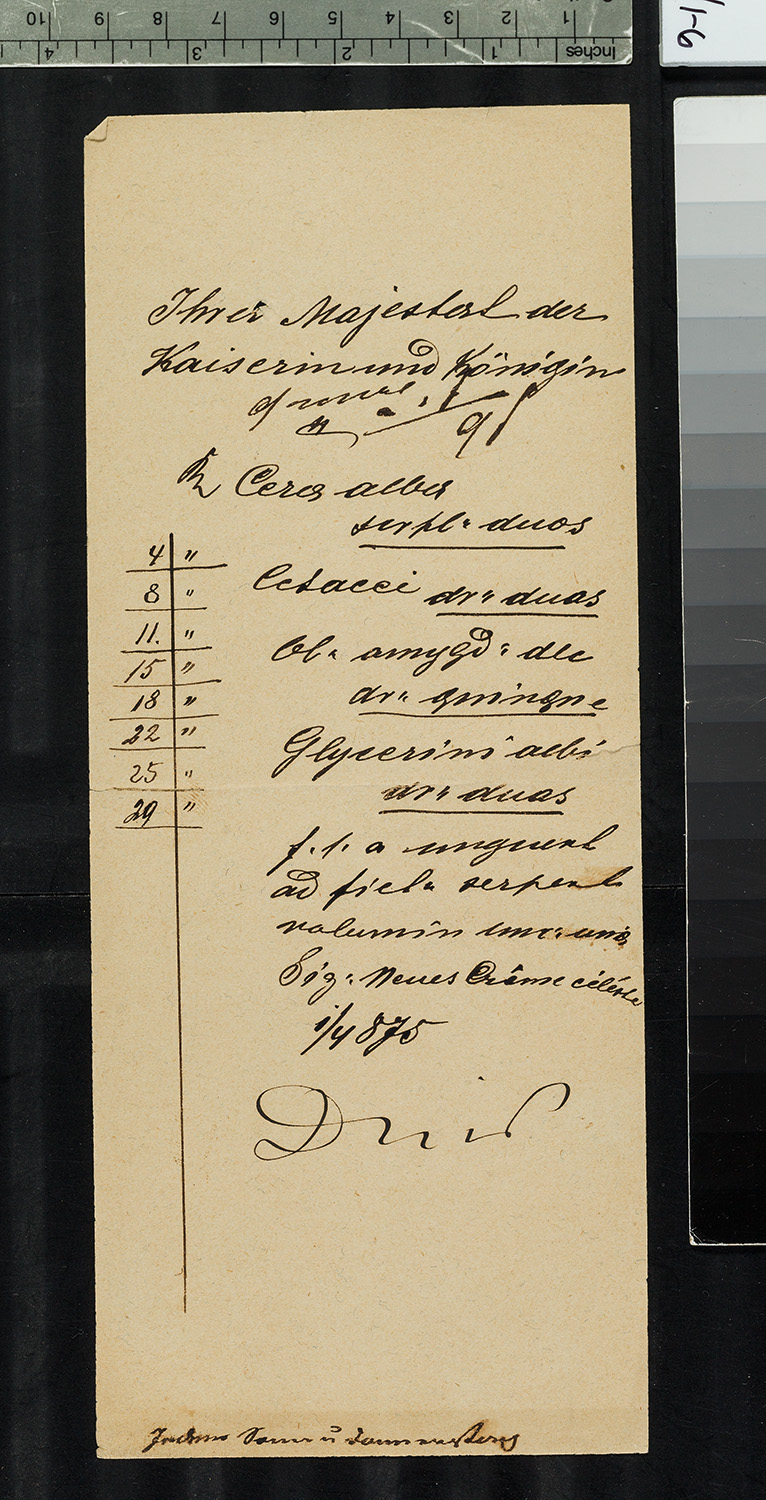 10 9 8 7 6 5 4 3 2 1
4 3 2 1 Inches
1-6
Ihrer Majestät der
Kaiserin und Königin
9
℞ Cera alba
duos
4 "
Cetacei dr" duas
8 "
11. "
Ol" amygd" dlc
15 "
dr" quinque
18 "
22 "
Glycerini albi
25 "
dr" duas
29 "
f. l. a unguent
ad fict" serpent
volumin unc" unis
Sig" Neues Crême céleste
1/4 875
Sonn u Donnerstag